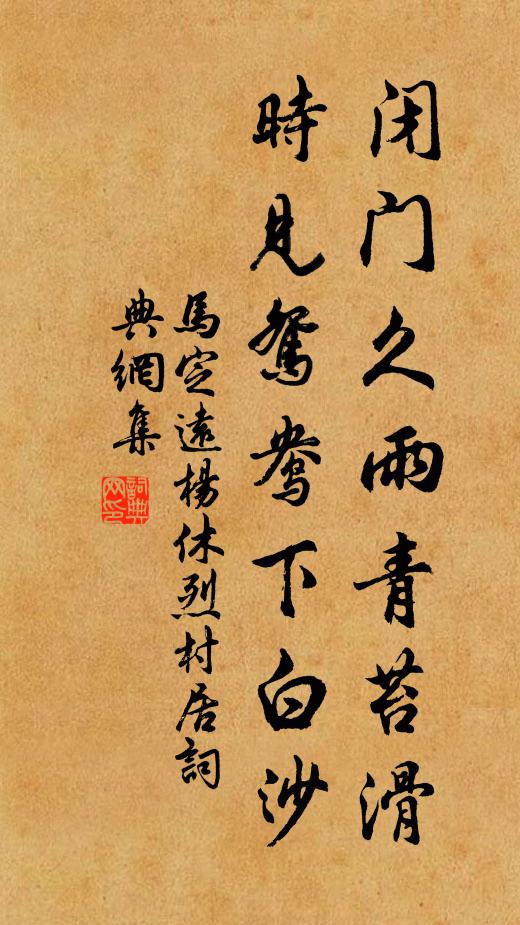 闭门久雨青苔滑
時見鴛鴦下白沙
馬定遠楊休烈村居詞
典網集
詞典网印